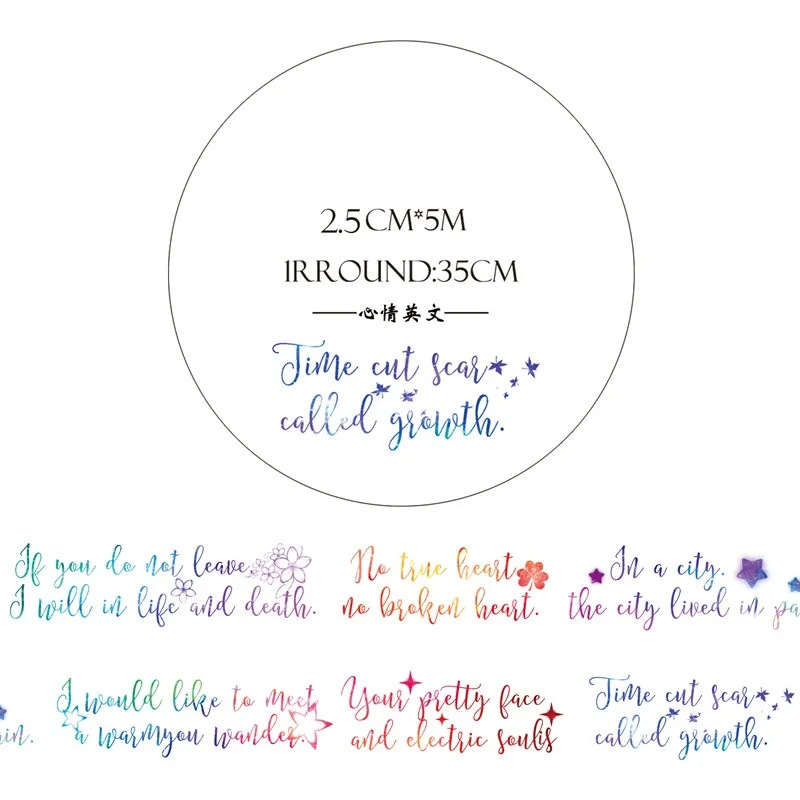 2.5CM*5M
1RROUND:35CM
心情英文
Time cut scar
called growth.
If you do not leave
I will in life and death.
No true heart
no broken heart.
In a city.
the city lived in pa
I would like to meet
in. a warmyou wander.
Your pretty face
and electric soulis
Time cut scar
called growth.